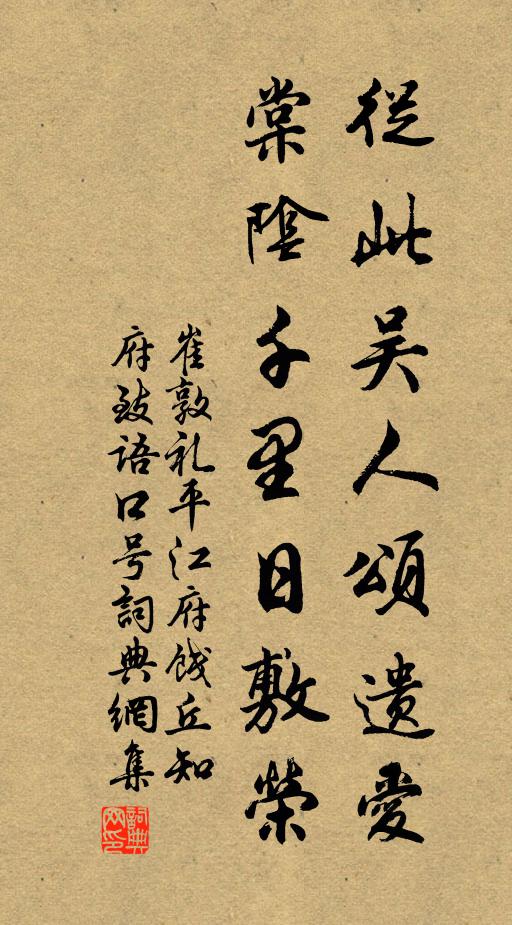 從此吴人頌遺愛
棠陰千里日敷榮
崔敦礼平江府餞丘知
府致語口号詞典網集
詞典网印